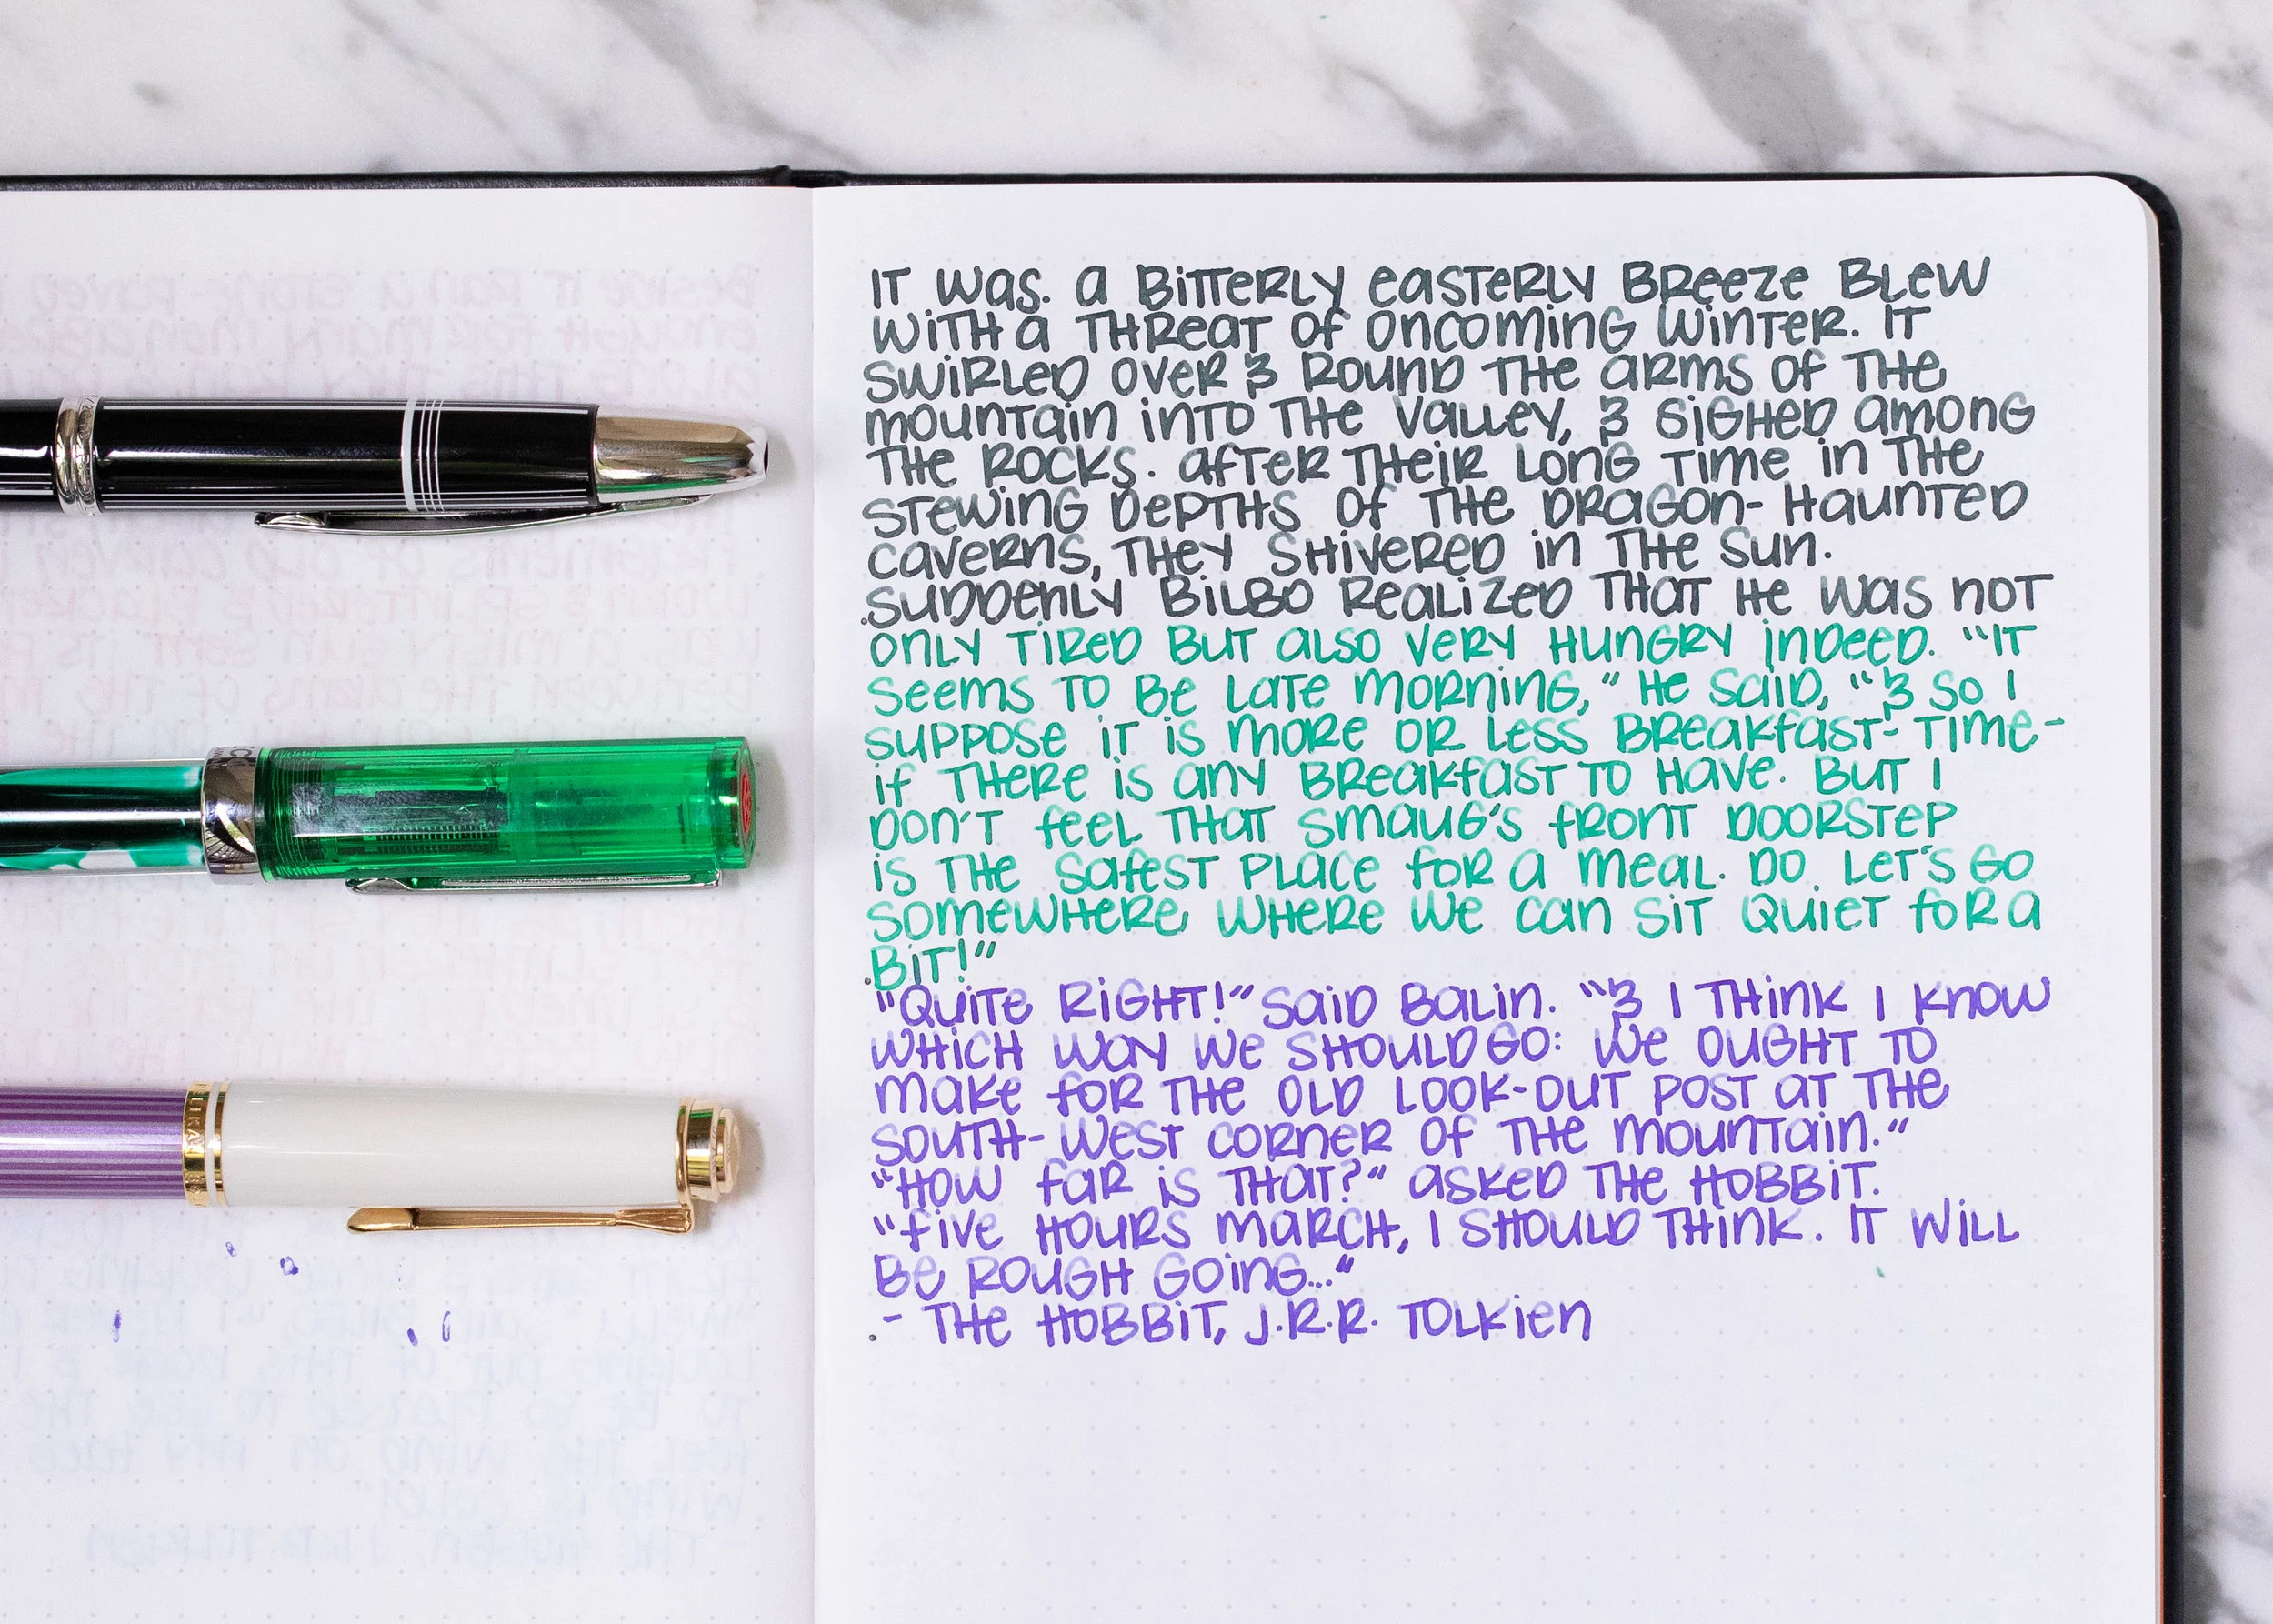 IT WAS. A BITTERLY EASTERLY BREEZE BLEW
WITH A THREAT OF ONCOMING WINTER. IT
SWIRLED OVER & ROUND THE ARMS OF THE
MOUNTAIN INTO THE VALLEY, & SIGHED AMONG
THE ROCKS. AFTER THEIR LONG TIME IN THE
STEWING DEPTHS OF THE DRAGON-HAUNTED
CAVERNS, THEY SHIVERED IN THE SUN.
SUDDENLY BILBO REALIZED THAT HE WAS NOT
ONLY TIRED BUT ALSO VERY HUNGRY INDEED. "IT
SEEMS TO BE LATE MORNING," HE SAID, "& SO I
SUPPOSE IT IS MORE OR LESS BREAKFAST-TIME-
IF THERE IS ANY BREAKFAST TO HAVE. BUT I
DON'T FEEL THAT SMAUG'S FRONT DOORSTEP
IS THE SAFEST PLACE FOR A MEAL. DO LET'S GO
SOMEWHERE WHERE WE CAN SIT QUIET FOR A
BIT!"
"QUITE RIGHT!" SAID BALIN. "& I THINK I KNOW
WHICH WAY WE SHOULD GO: WE OUGHT TO
MAKE FOR THE OLD LOOK-OUT POST AT THE
SOUTH-WEST CORNER OF THE MOUNTAIN."
"HOW FAR IS THAT?" ASKED THE HOBBIT.
"FIVE HOURS MARCH, I SHOULD THINK. IT WILL
BE ROUGH GOING..."
- THE HOBBIT, J.R.R. TOLKIEN